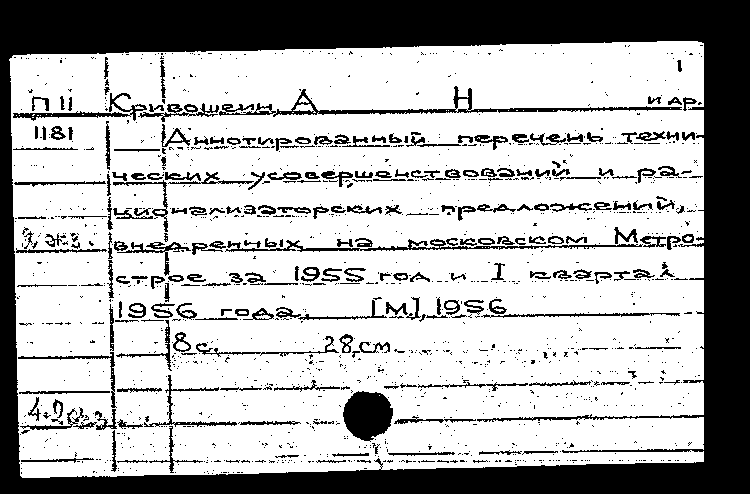 1
П 11 Кривошеин, А Н и др.
1181 Аннотированный перечень техни-
ческих усовершенствований и ра-
ционализаторских предложений,
2 экз. внедренных на московском Метро-
строе за 1955 год и I квартал
1956 года. [М], 1956
8 с. 28 см.